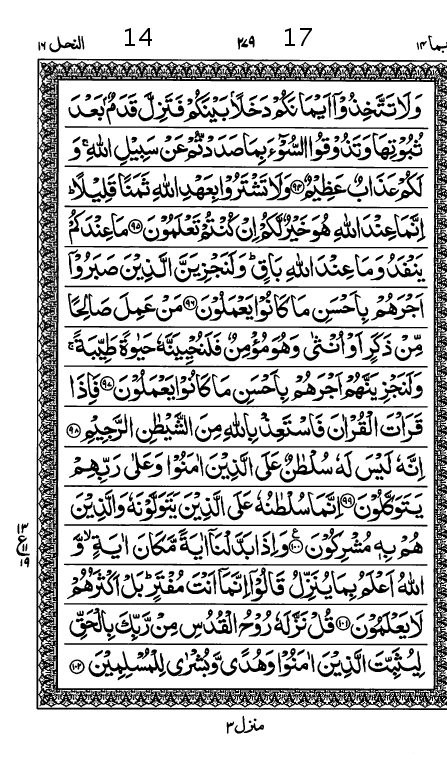 النحل ١٦ 14 ٢٧٩ 17 ربما ١٤
وَلَا تَتَّخِذُوْٓا اَيْمَانَكُمْ دَخَلًاۢ بَيْنَكُمْ فَتَزِلَّ قَدَمٌۢ بَعْدَ
ثُبُوْتِهَا وَتَذُوْقُوا السُّوْٓءَ بِمَا صَدَدْتُّمْ عَنْ سَبِيْلِ اللّٰهِ ۚ وَ
لَكُمْ عَذَابٌ عَظِيْمٌ ﴿٩٤﴾ وَلَا تَشْتَرُوْا بِعَهْدِ اللّٰهِ ثَمَنًا قَلِيْلًا ؕ
اِنَّمَا عِنْدَ اللّٰهِ هُوَ خَيْرٌ لَّكُمْ اِنْ كُنْتُمْ تَعْلَمُوْنَ ﴿٩٥﴾ مَا عِنْدَكُمْ
يَنْفَدُ وَمَا عِنْدَ اللّٰهِ بَاقٍ ؕ وَلَنَجْزِيَنَّ الَّذِيْنَ صَبَرُوْٓا
اَجْرَهُمْ بِاَحْسَنِ مَا كَانُوْا يَعْمَلُوْنَ ﴿٩٦﴾ مَنْ عَمِلَ صَالِحًا
مِّنْ ذَكَرٍ اَوْ اُنْثٰى وَهُوَ مُؤْمِنٌ فَلَنُحْيِيَنَّهٗ حَيٰوةً طَيِّبَةً ۚ
وَلَنَجْزِيَنَّهُمْ اَجْرَهُمْ بِاَحْسَنِ مَا كَانُوْا يَعْمَلُوْنَ ﴿٩٧﴾ فَاِذَا
قَرَاْتَ الْقُرْاٰنَ فَاسْتَعِذْ بِاللّٰهِ مِنَ الشَّيْطٰنِ الرَّجِيْمِ ﴿٩٨﴾
اِنَّهٗ لَيْسَ لَهٗ سُلْطٰنٌ عَلَى الَّذِيْنَ اٰمَنُوْا وَعَلٰى رَبِّهِمْ
يَتَوَكَّلُوْنَ ﴿٩٩﴾ اِنَّمَا سُلْطٰنُهٗ عَلَى الَّذِيْنَ يَتَوَلَّوْنَهٗ وَالَّذِيْنَ
هُمْ بِهٖ مُشْرِكُوْنَ ﴿١٠٠﴾ وَاِذَا بَدَّلْنَآ اٰيَةً مَّكَانَ اٰيَةٍ ۙ وَّ
١٣ ع ١١ ١٩
اللّٰهُ اَعْلَمُ بِمَا يُنَزِّلُ قَالُوْٓا اِنَّمَآ اَنْتَ مُفْتَرٍ ؕ بَلْ اَكْثَرُهُمْ
لَا يَعْلَمُوْنَ ﴿١٠١﴾ قُلْ نَزَّلَهٗ رُوْحُ الْقُدُسِ مِنْ رَّبِّكَ بِالْحَقِّ
لِيُثَبِّتَ الَّذِيْنَ اٰمَنُوْا وَهُدًى وَّبُشْرٰى لِلْمُسْلِمِيْنَ ﴿١٠٢﴾
منزل ٣